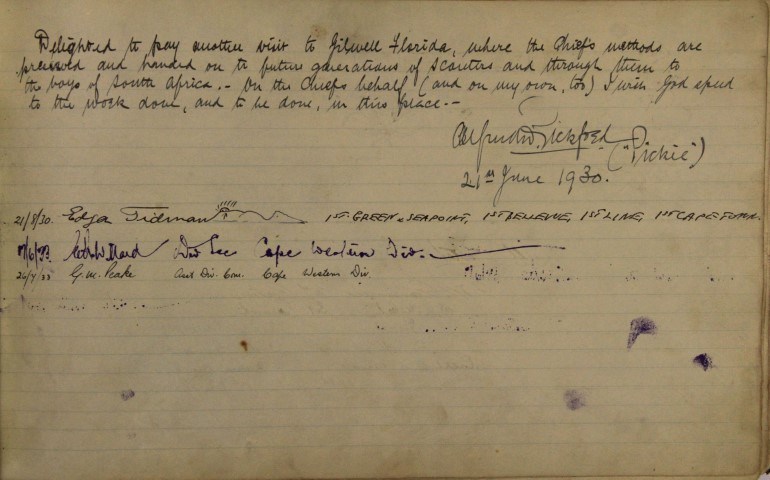 Delighted to pay another visit to Gilwell Florida, where the Chief's methods are
preserved and handed on to future generations of Scouters and through them to
the boys of South Africa. - On the Chief's behalf (and on my own, too) I wish God speed
to the work done, and to be done, in this place. -
Alfred W. Pickford
("Pickie")
21st June 1930.
21/8/30. Edgar Tidman 1ST GREEN & SEAPOINT, 1ST BELLEVUE, 1ST LINE, 1ST CAPE TOWN.
/6/33 Ward Div Sec Cape Western Div.
26/7/33 G.M. Peake Asst Div. Com. Cape Western Div